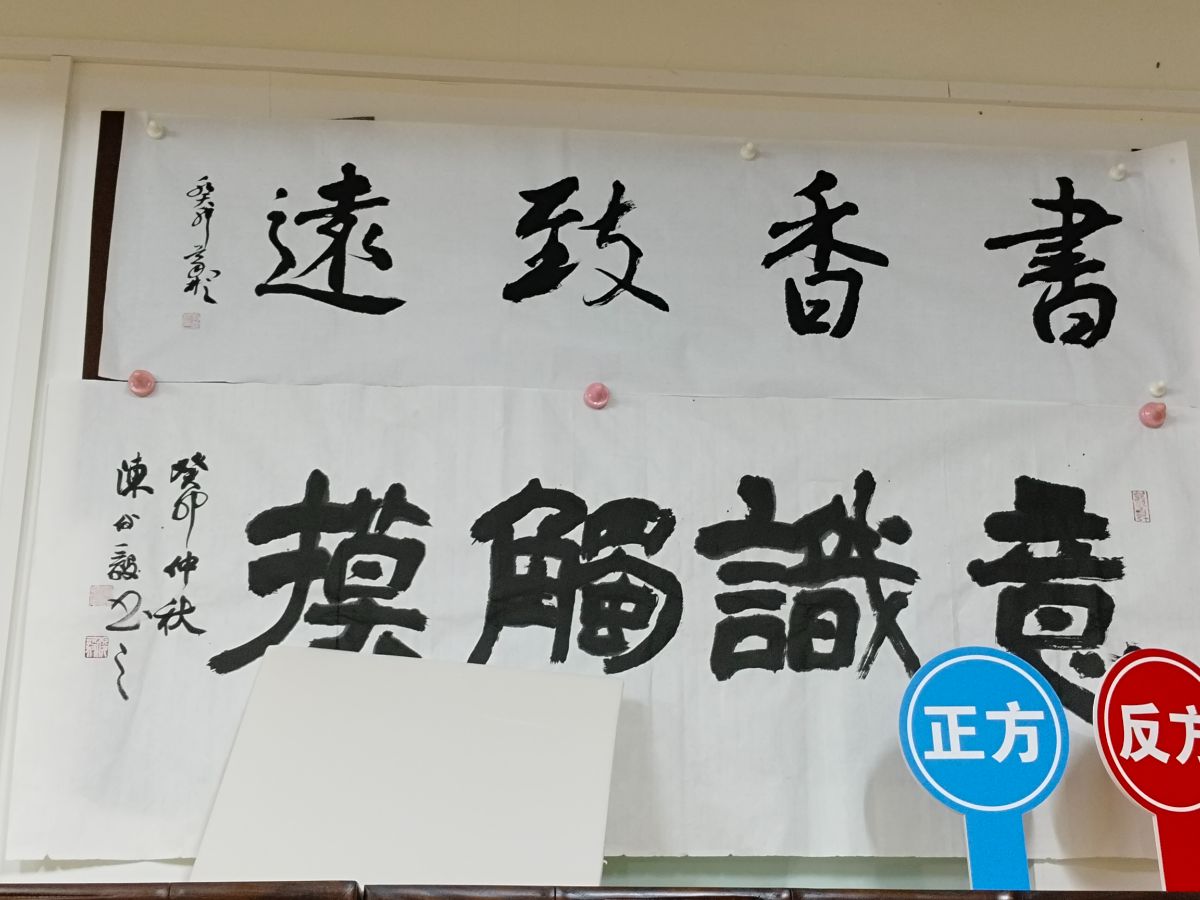 書香致遠
癸卯
意識觸摸
癸卯仲秋
陳
正方
反方